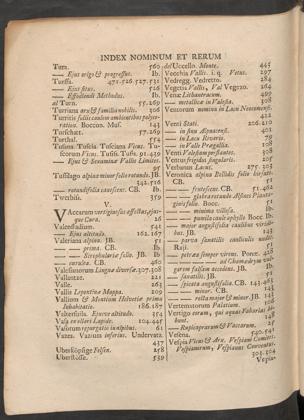 INDEX NOMINUM ET RERUM
Turn. 560
— Ejus origo & progressus. Ib.
Turssa. 471.526.527.531
— Ejus situs. 526
— Effodiendi Methodus. Ib.
al Turn. 55.269
Turriana arx & familia nobilis. 306
Turritis foliis caulem ambientibus polyceratios. Boccon. Mus. 143
Turschatt. 57.269
Turthal. 554
Tuscum Tuscia Tusciana Vicus.
Vicus. Tussis Turb. 91.459
— Ejus & Sevuminæ Vallis Limites.
Tussilago alpina minor folio rotundo. JB. 142.516
— rotundifolia canescens. CB. Ib.
Twerbiss. 359
V.
VAccarum vertiginosus affectus, ejusque Cura. 26
Valendusium. 541
— Ejus altitudo. 162.167
Valeriana alpina. JB. 51
— prima. CB. Ib.
— Scrophulariæ folio. JB. Ib
— cærulea. CB. 460
Valesianorum Lingua diversæ. 307.308
Vallentan. 221
Valle. 263
Vallis Lepontina Moppa. 209
Vallium & Montium Helvetiæ prima Inhabitatio. 186.187
Volterfoils. Ejuræ altitudo. 354
Vasa ex ollari Lapide. 104.445
Vasorum repurgatio insipidus. 61
Vazes. Vazium inferius. Undervatz. 437
Uberköpfige Felsen. 258
Uberstosse. 539
del Uccello. Monte. 445
Vecchia Vallis. i. q. Vetus. 297
Vedregg. Vedretto. 284
Vegetis Vallis, Val Vegezo. 264
Venæ Lithanthracum. 499
— metallicæ in Valesia. 308
Ventorum nomina in Lacu Novocomensi. 422
Venti Statu. 206.210
— in Lacu Riværio. 79
— in Valle Pragallia. 108
Venti Valesiam perflantes. 308
Ventus frigidus singularis. 205
Verbanus Lacus. 271.503
Veronica alpina Bellidis folio hirsuta. CB. 51
— frutescens. CB. 51.462
— glabra rotundo Alsines Plantaginis folio. Bocc. 51
— minima villosa. Ib.
— pumila caule aphyllo Bocc. Ib.
— major angustifolia caulibus viridibus. JB. 143
— parva saxatilis cauliculis nudis Raji. 51
— petræa semper virens. Ponæ. 408
— — — ad Chamædryn vulgarem falsam accedens. JB. Ib.
— saxatilis. JB. 51
— spicata angustifolia. CB. 143.463
— — minor. CB. 143
— — recta major & minor. JB. 143
Vertemarorum Palatium. 108
Vertigo ovum, qui aquas Fabarias se habent. 148
— Rupicaprarum & Vaccarum. 25
Vesena. 540.541
Vespia Vicus & Aræ. Vespiani Comites. Vespiamirum, Vespiones Conventus 303.304
Vespia-